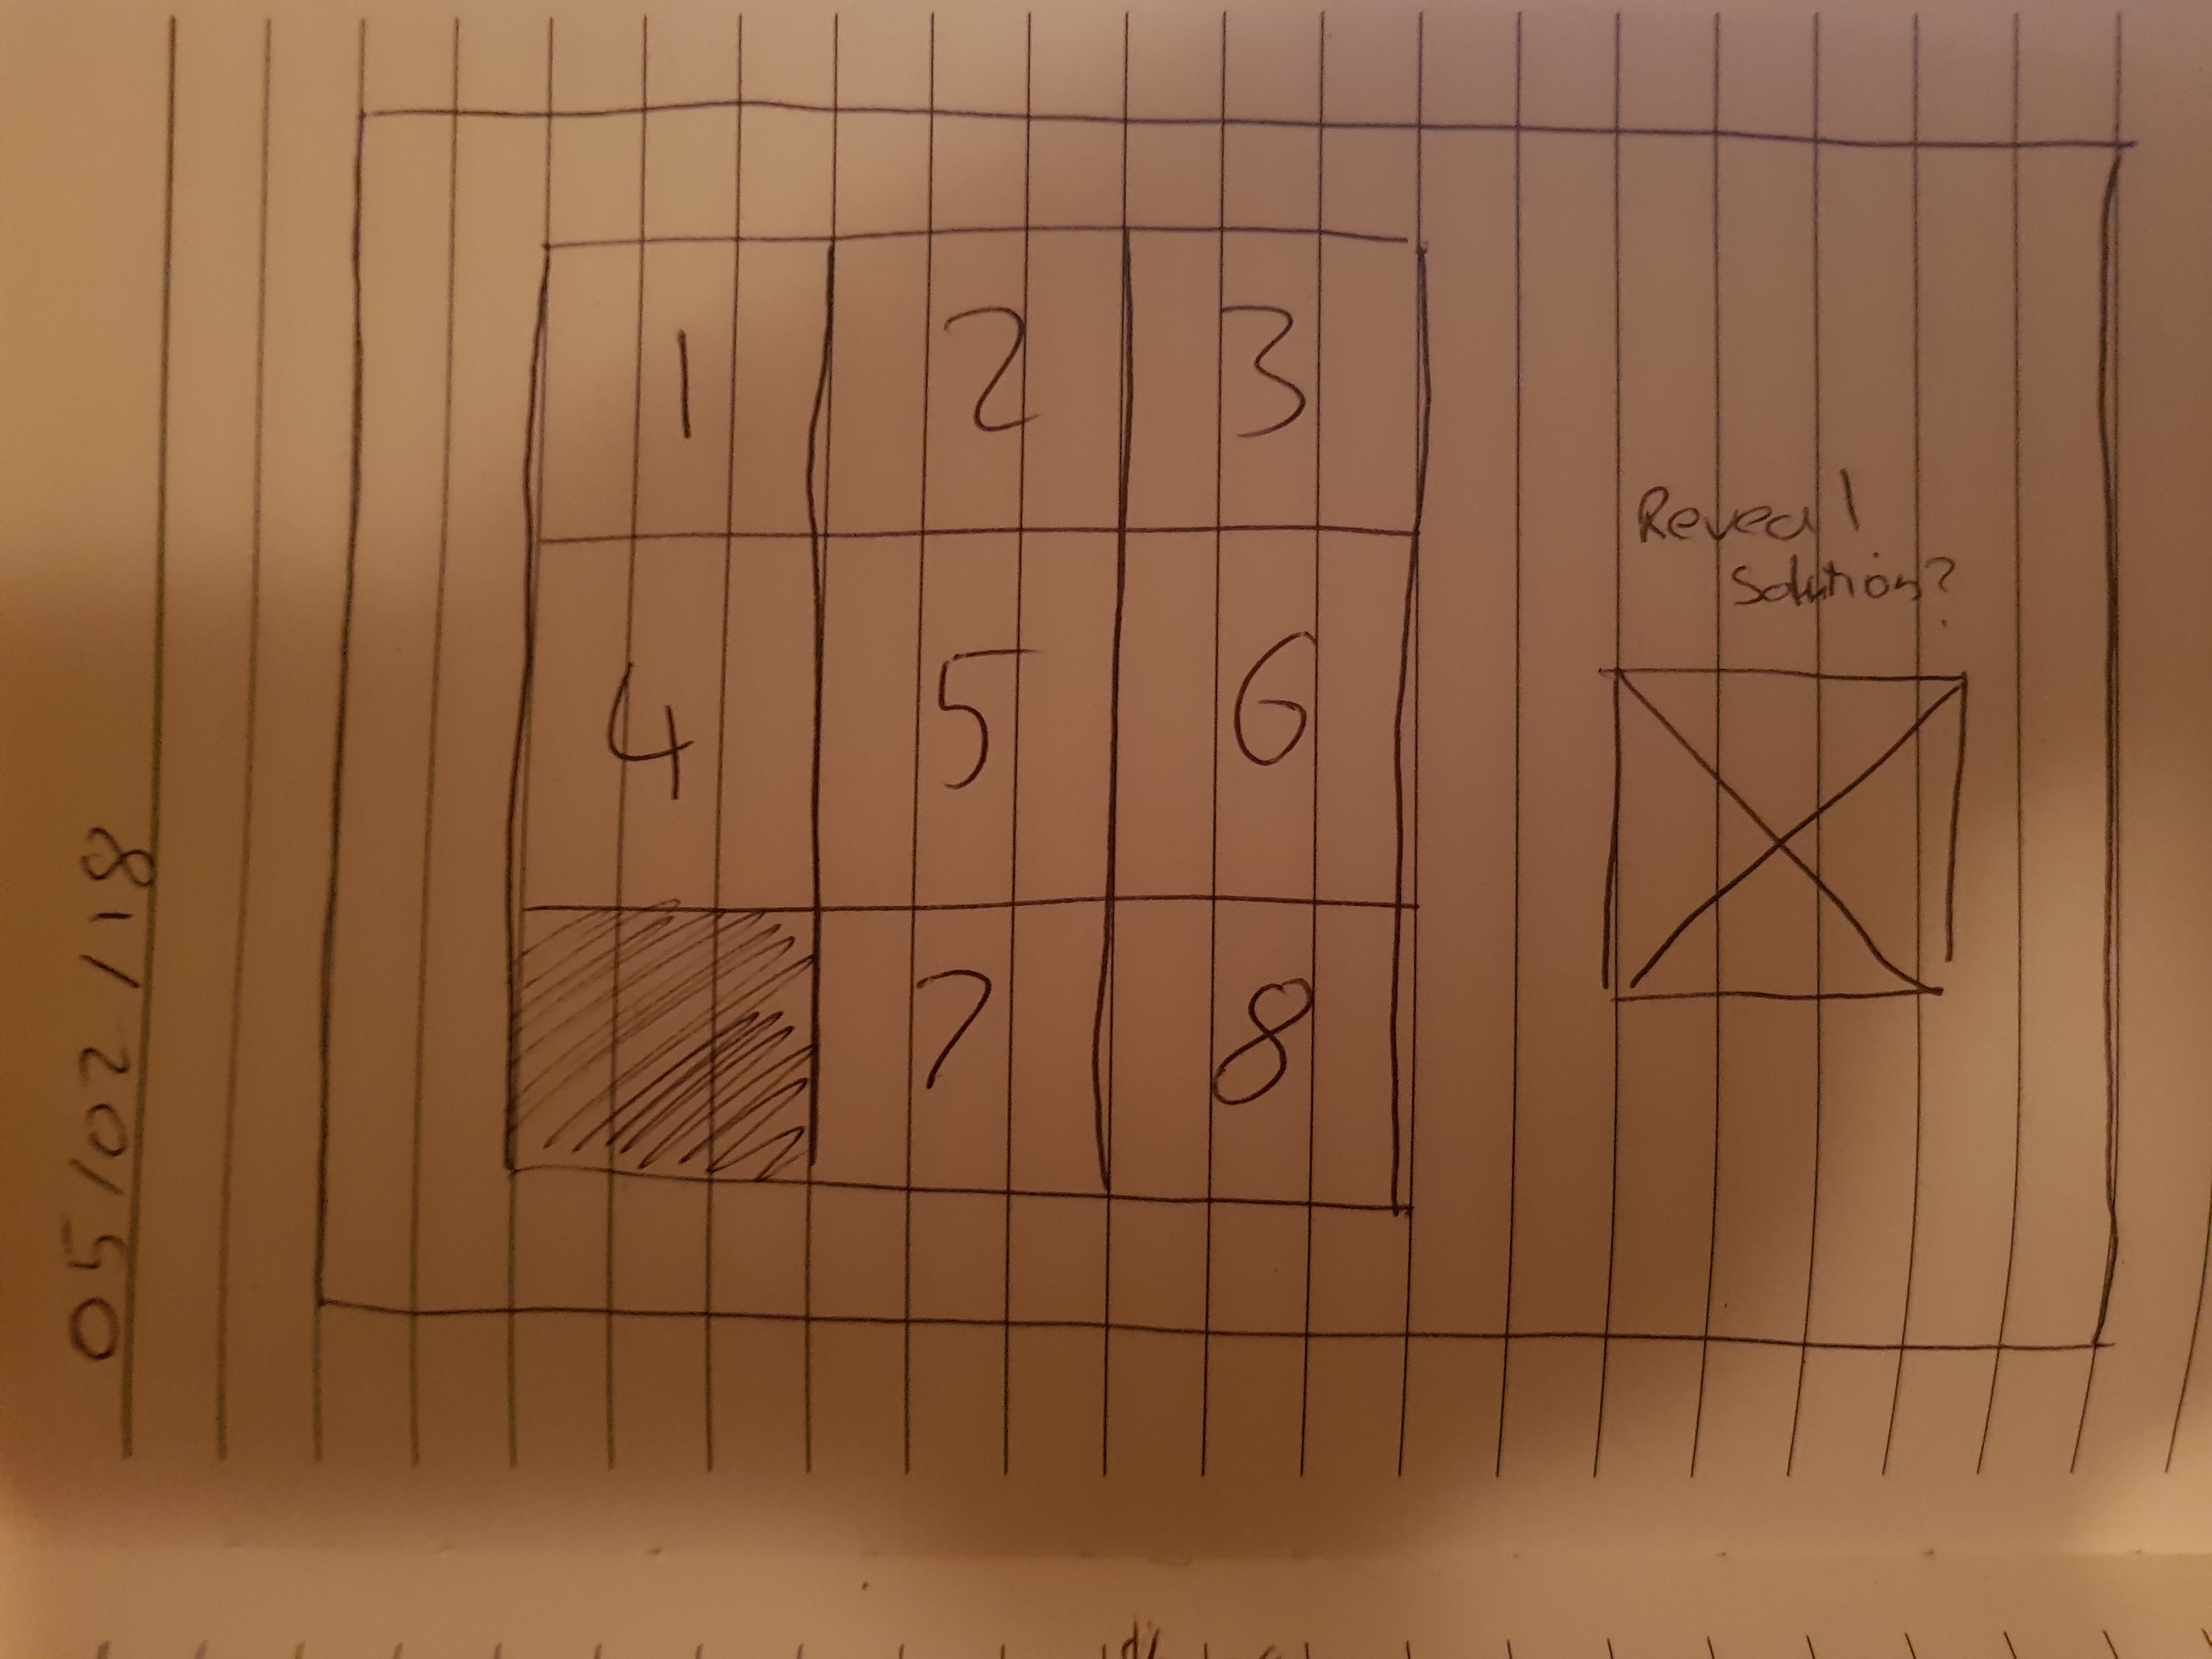 05/02/18
1 2 3
4 5 6
7 8
Reveal
Solution?